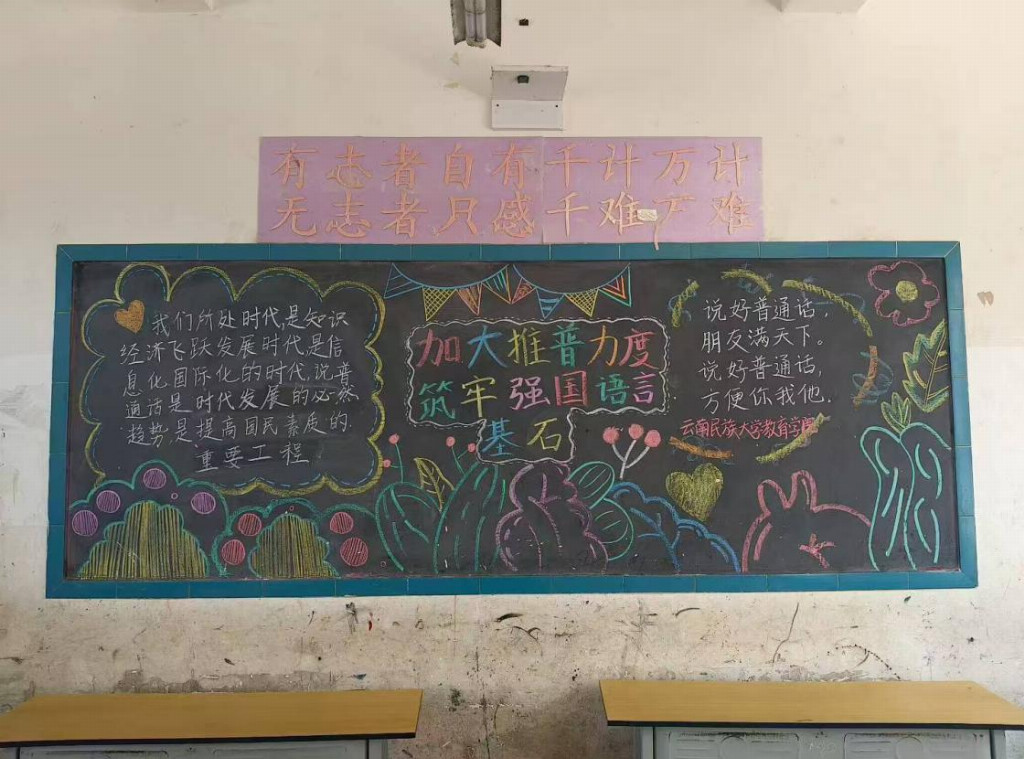 有志者自有千计万计
无志者只感千难万难
我们所处时代,是知识
经济飞跃发展时代是信
息化国际化的时代,说普
通话是时代发展的必然
趋势,是提高国民素质的
重要工程
加大推普力度
筑牢强国语言
基石
说好普通话,
朋友满天下。
说好普通话,
方便你我他.
云南民族大学教育学院